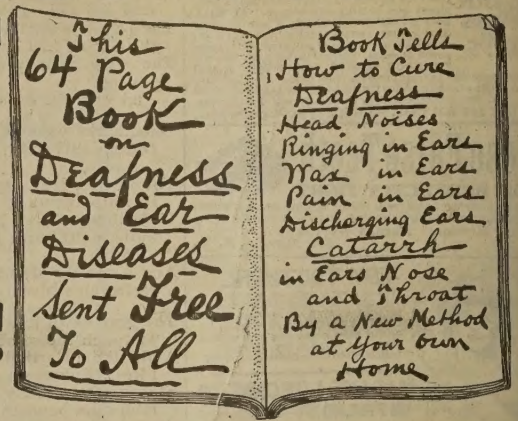 This
64 Page
Book
on
Deafness
and Ear
Diseases
Sent Free
To All
Book Tells
How to Cure
Deafness
Head Noises
Ringing in Ears
Wax in Ears
Pain in Ears
Discharging Ears
Catarrh
in Ears Nose
and Throat
By a New Method
at Your Own
Home